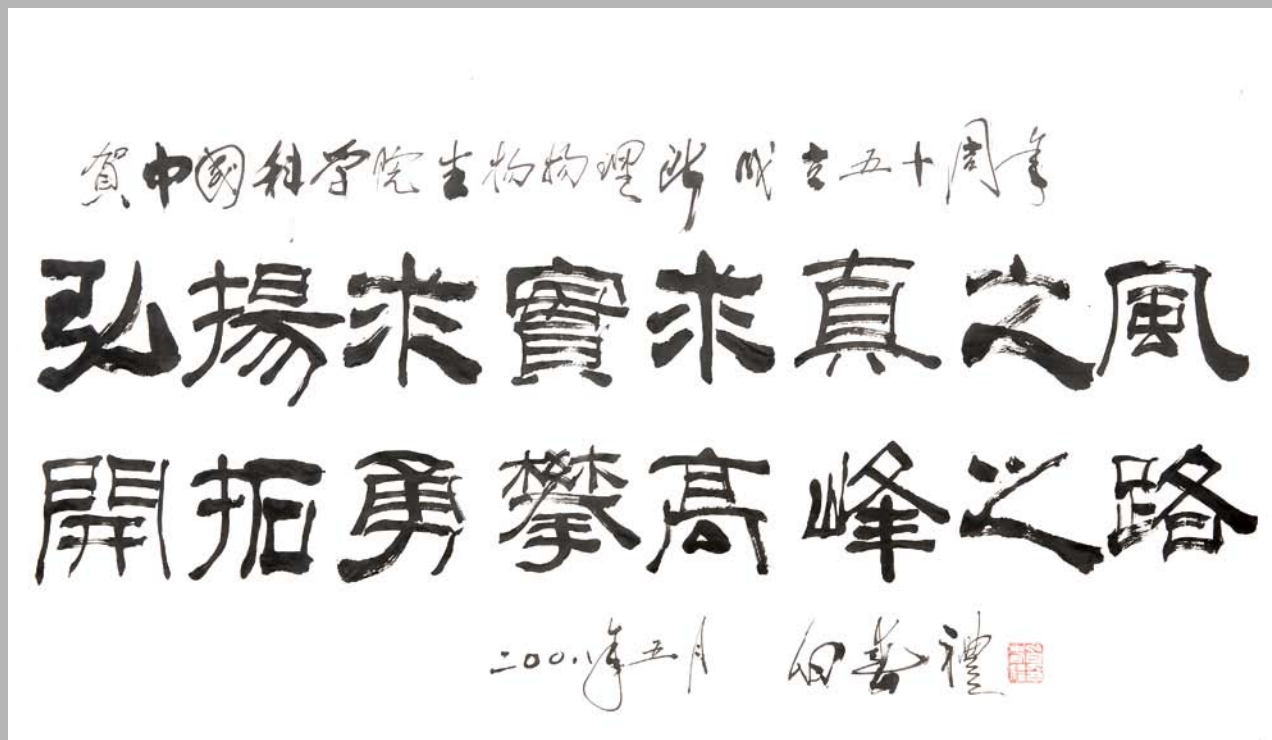 賀中國科学院生物物理所成立五十周年
弘揚求實求真之風
開拓勇攀高峰之路
二00八年五月 白春禮